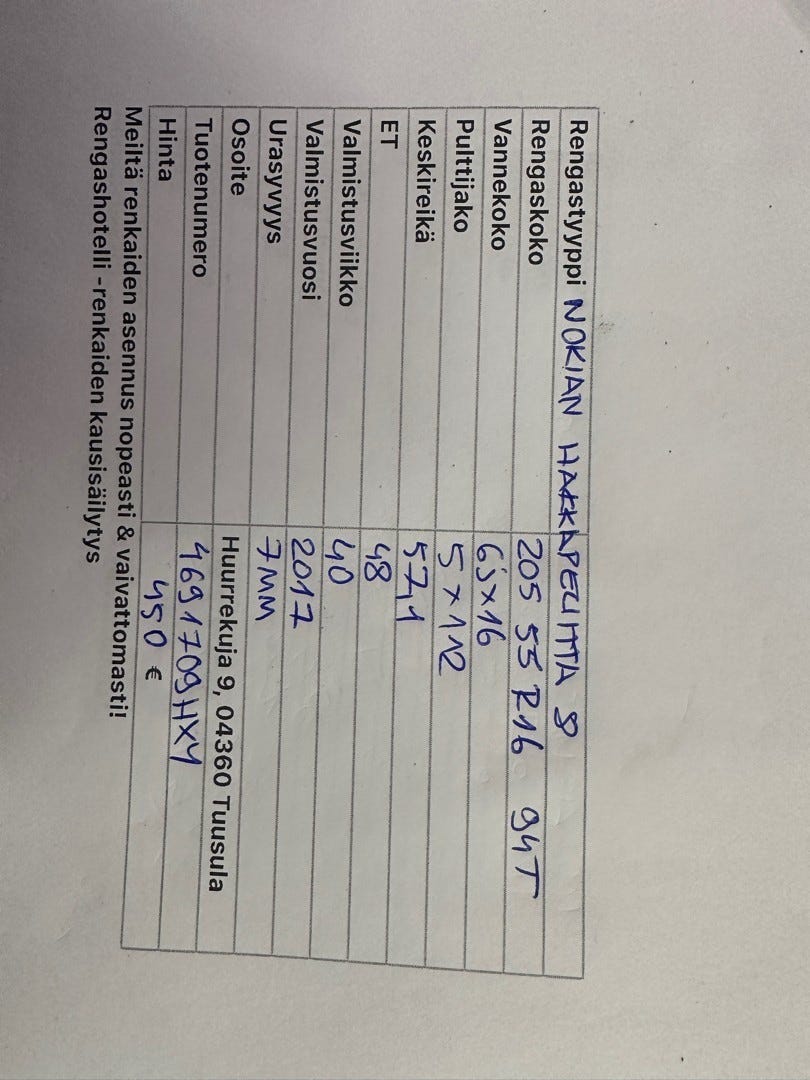 Rengastyyppi NOKIAN HAKKAPELIITTA 8
Rengaskoko 205 55 R16 94T
Vannekoko 6Jx16
Pulttijako 5x112
Keskireikä 57,1
ET 48
Valmistusviikko 40
Valmistusvuosi 2017
Urasyvyys 7MM
Osoite Huurrekuja 9, 04360 Tuusula
Tuotenumero 4691709HXY
Hinta 450 €
Meiltä renkaiden asennus nopeasti & vaivattomasti!
Rengashotelli -renkaiden kausisäilytys